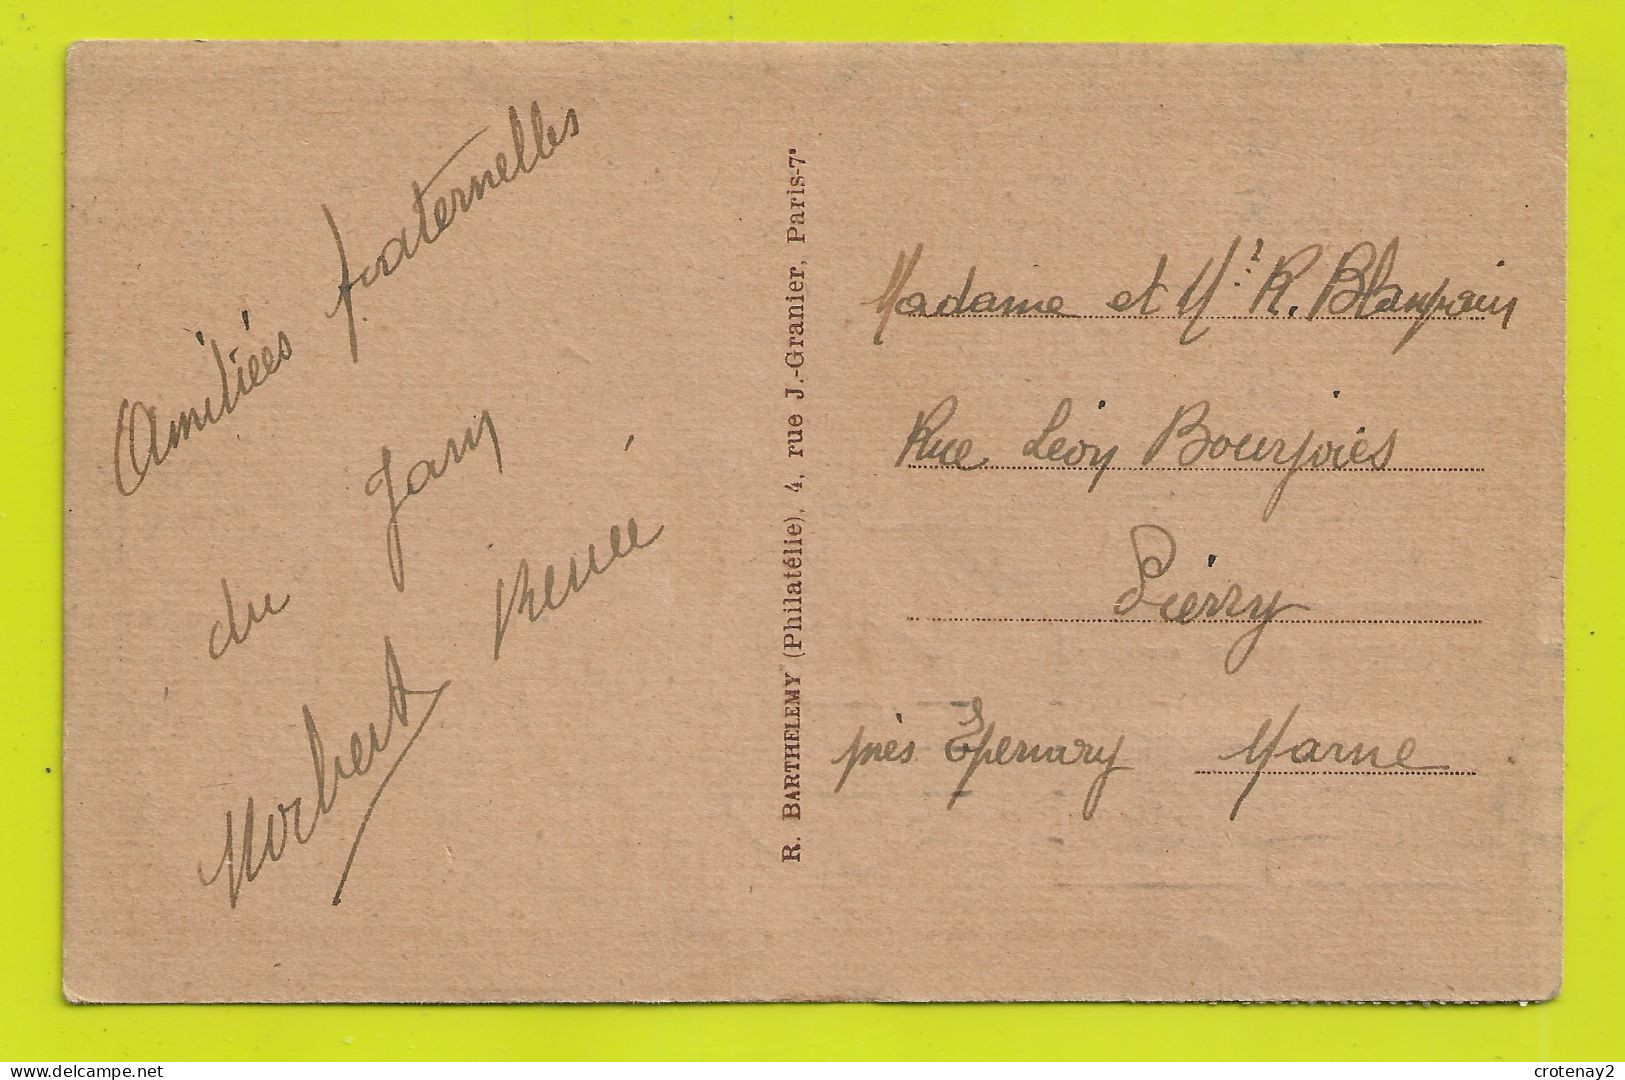 Amitiées fraternelles
du Jary
Norbert Renée
R. BARTHELEMY (Philatélie), 4, rue J.-Granier, Paris-7e
Madame et Mr R. Blanpain
Rue Léon Bourjois
Pierry
près Epernay Marne
delcampe.net
crotenay2